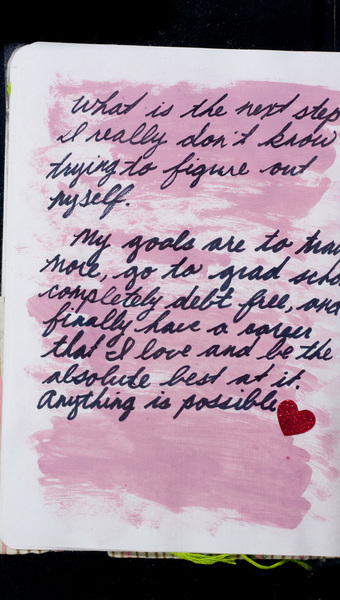 What is the next step
I really don't know
trying to figure out
myself.
My goals are to
more, go to grad
completely debt free, and
finally have a career
that I love and be the
absolute best at it.
Anything is possible